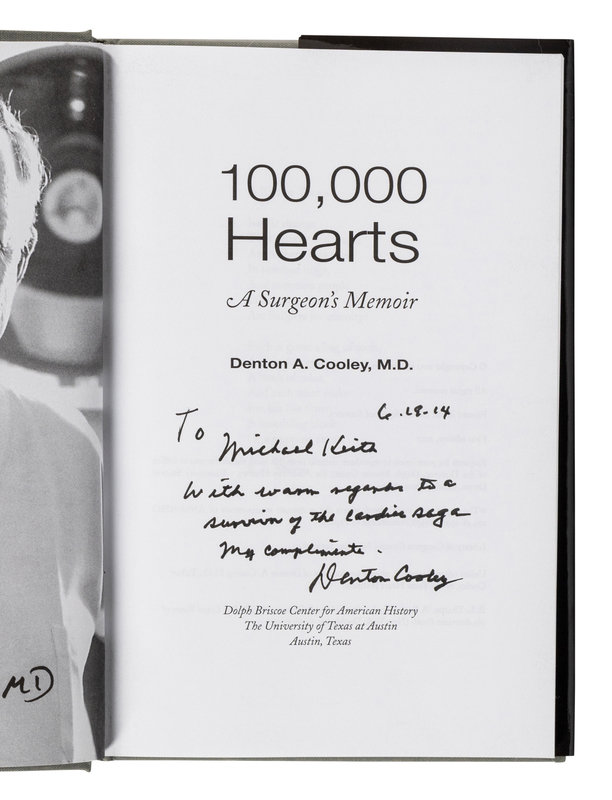 100,000
Hearts
A Surgeon's Memoir
Denton A. Cooley, M.D.
6.18-14
To
Michael Keith
With warm regards to a
survivor of the cardiac saga
My compliments.
Denton Cooley
Dolph Briscoe Center for American History
The University of Texas at Austin
Austin, Texas
MD